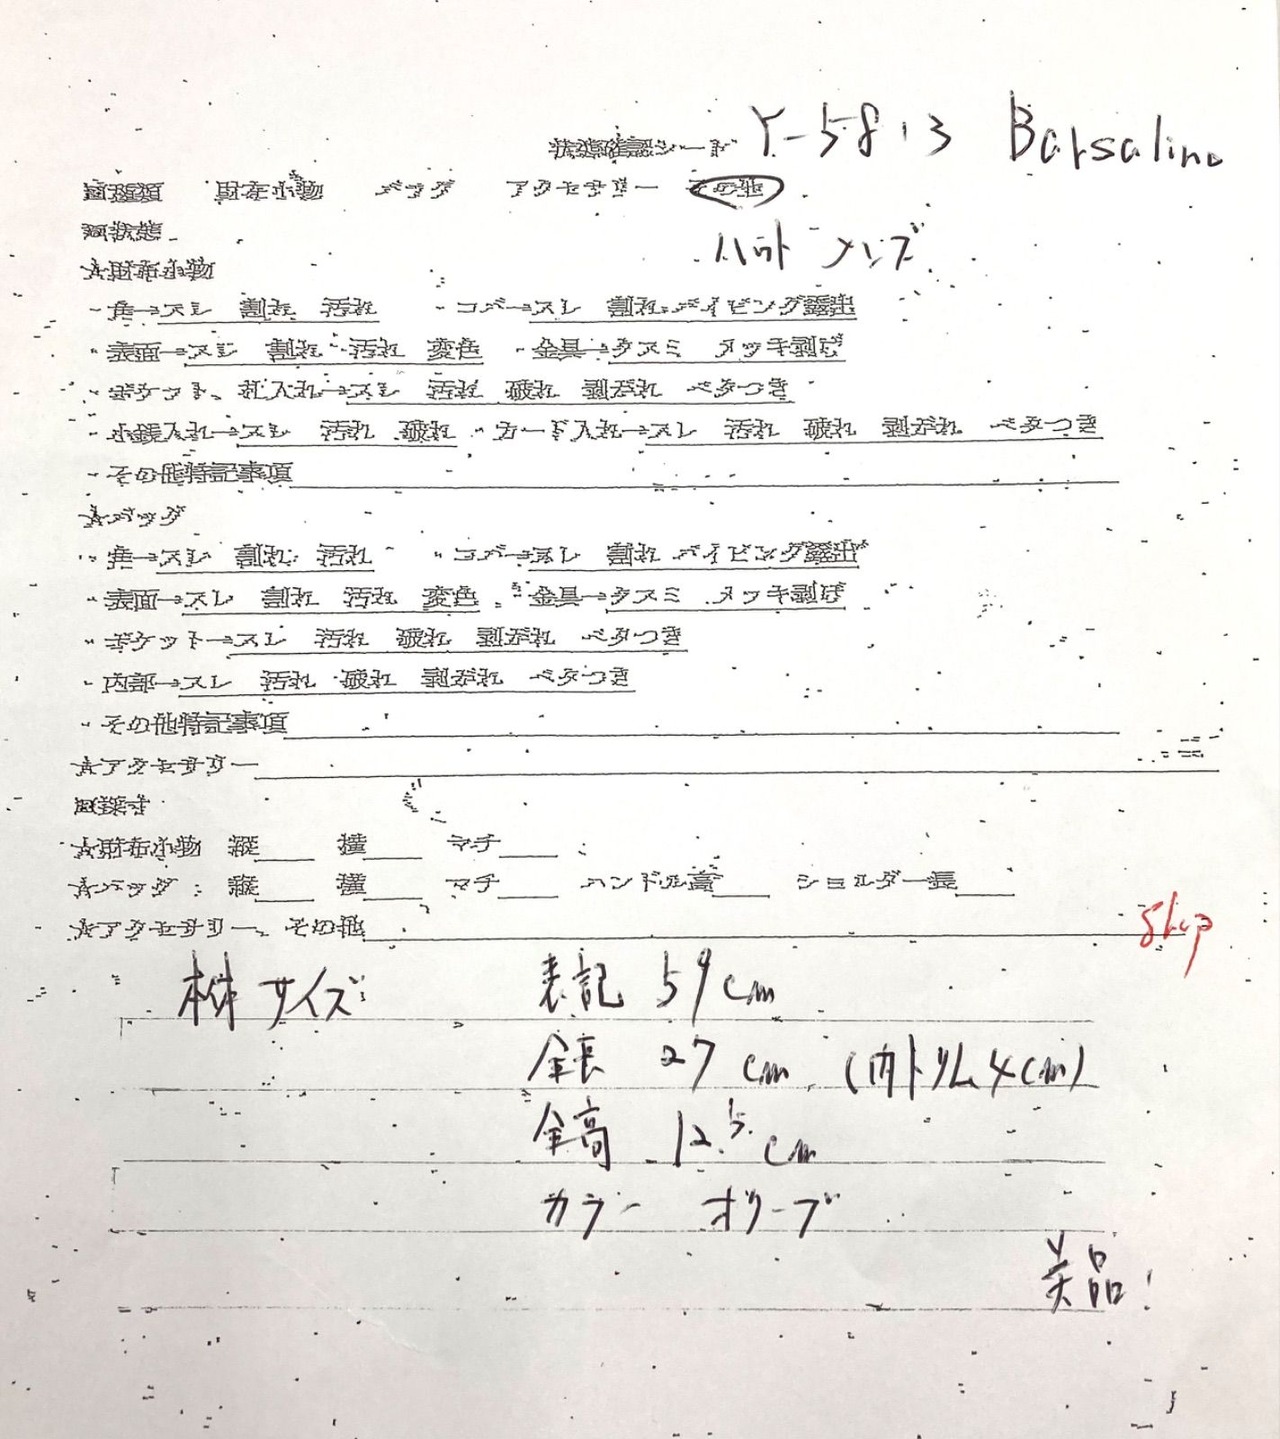 状態確認シート Y-5813 Borsalino
財布小物 バッグ アクセサリー その他
状態
ハット メンズ
☆財布小物
・角→スレ 割れ 汚れ ・コバ→スレ 割れ パイピング露出
・表面→スレ 割れ 汚れ 変色 ・金具→クスミ メッキ剥げ
・ポケット、札入れ→スレ 汚れ 破れ 剥がれ ベタつき
・小銭入れ→スレ 汚れ 破れ ・カード入れ→スレ 汚れ 破れ 剥がれ ベタつき
・その他特記事項
☆バッグ
・角→スレ 割れ 汚れ ・コバ→スレ 割れ パイピング露出
・表面→スレ 割れ 汚れ 変色 ・金具→クスミ メッキ剥げ
・ポケット→スレ 汚れ 破れ 剥がれ ベタつき
・内部→スレ 汚れ 破れ 剥がれ ベタつき
・その他特記事項
☆アクセサリー
採寸
☆財布小物 縦 横 マチ
☆バッグ: 縦 横 マチ ハンドル高 ショルダー長
☆アクセサリー、その他
本体サイズ 表記 59cm
全長 27cm (内トリム4cm)
全高 12.5cm
カラー オリーブ
美品!